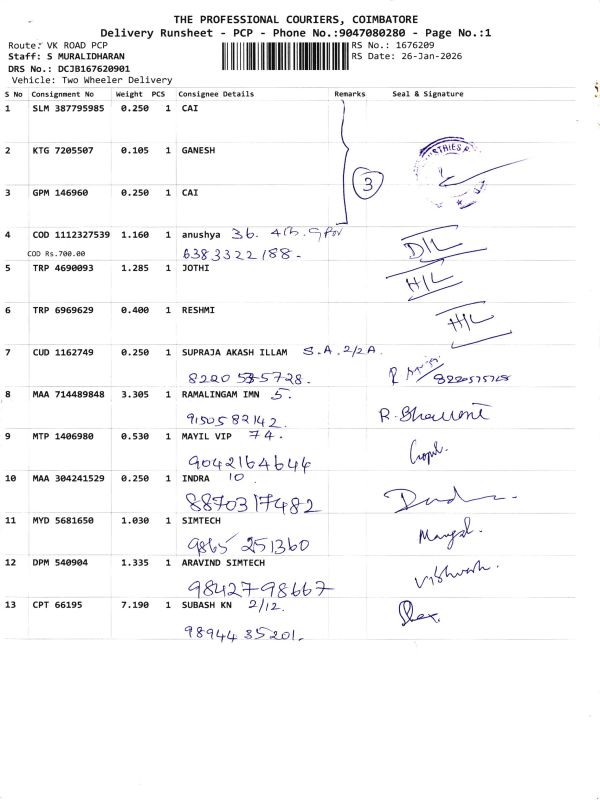 THE PROFESSIONAL COURIERS, COIMBATORE
Delivery Runsheet - PCP - Phone No.:9047080280 - Page No.:1
Route: VK ROAD PCP RS No.: 1676209
Staff: S MURALIDHARAN RS Date: 26-Jan-2026
DRS No.: DCJB167620901
Vehicle: Two Wheeler Delivery
S No Consignment No Weight PCS Consignee Details Remarks Seal & Signature
1 SLM 387795985 0.250 1 CAI
2 KTG 7205507 0.105 1 GANESH
3
3 GPM 146960 0.250 1 CAI
4 COD 1112327539 1.160 1 anushya 3b.
COD Rs.700.00 6383322188- D/L
5 TRP 4690093 1.285 1 JOTHI H/L
6 TRP 6969629 0.400 1 RESHMI H/L
7 CUD 1162749 0.250 1 SUPRAJA AKASH ILLAM S.A. 2/2A.
8220 535728.
8 MAA 714489848 3.305 1 RAMALINGAM IMN 5.
9150582142.
9 MTP 1406980 0.530 1 MAYIL VIP 74.
9042164644
10 MAA 304241529 0.250 1 INDRA 10
8870317482
11 MYD 5681650 1.030 1 SIMTECH
9865 251360
12 DPM 540904 1.335 1 ARAVIND SIMTECH Vishwash.
9842798667
13 CPT 66195 7.190 1 SUBASH KN 2/12.
98944 35201.